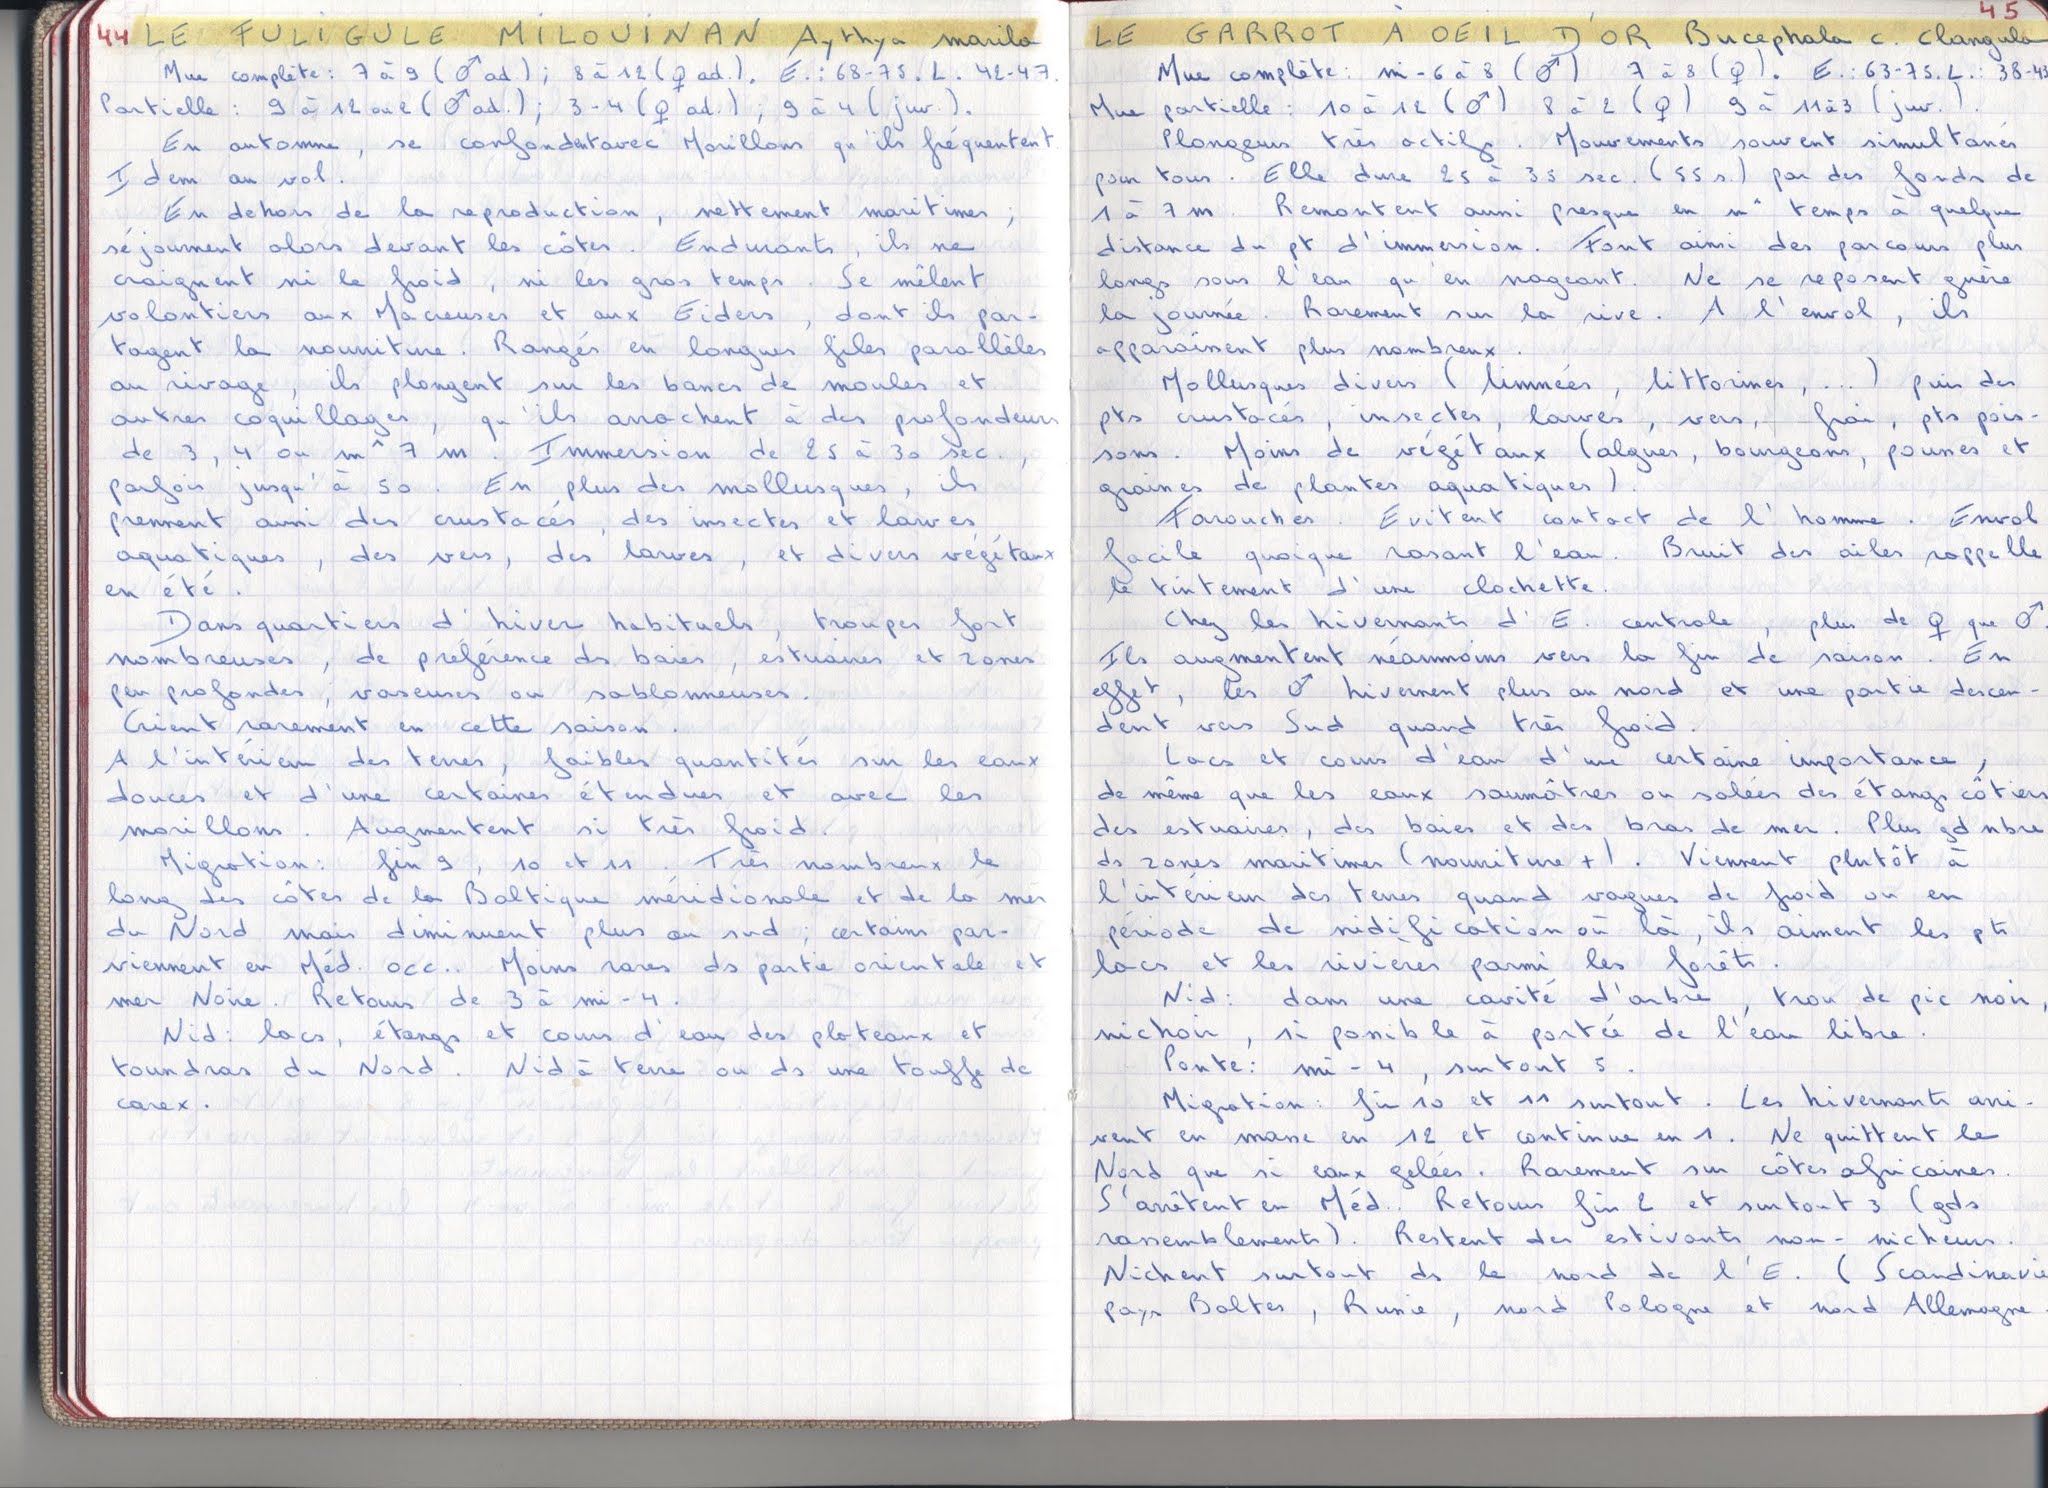 44 LE FULIGULE MILOUINAN Aythya marila
Mue complète : 7 à 9 (♂ ad.) ; 8 à 12 (♀ ad.). E. : 68-75. L. 42-47.
Partielle : 9 à 12 ou 2 (♂ ad.) ; 3-4 (♀ ad.) ; 9 à 4 (juv.).
En automne, se confondent avec Morillons qu'ils fréquentent.
Idem au vol.
En dehors de la reproduction, nettement maritimes ;
séjournent alors devant les côtes. Endurants, ils ne
craignent ni le froid, ni les gros temps. Se mêlent
volontiers aux Macreuses et aux Eiders, dont ils par-
tagent la nourriture. Rangés en longues files parallèles
au rivage, ils plongent sur les bancs de moules et
autres coquillages, qu'ils arrachent à des profondeurs
de 3, 4 ou m^ 7 m. Immersion de 25 à 30 sec.,
parfois jusqu'à 50. En plus des mollusques, ils
prennent aussi des crustacés, des insectes et larves
aquatiques, des vers, des larves, et divers végétaux
en été.
Dans quartiers d'hiver habituels, troupes fort
nombreuses, de préférence ds baies, estuaires et zones
peu profondes, vaseuses ou sablonneuses.
Crient rarement en cette saison.
A l'intérieur des terres, faibles quantités sur les eaux
douces et d'une certaines étendues et avec les
morillons. Augmentent si très froid.
Migration : fin 9, 10 et 11. Très nombreux le
long des côtes de la Baltique méridionale et de la mer
du Nord mais diminuent plus au sud ; certains par-
viennent en Méd. occ.. Moins rares ds partie orientale et
mer Noire. Retour de 3 à mi-4.
Nid : lacs, étangs et cours d'eau des plateaux et
toundras du Nord. Nid à terre ou ds une touffe de
carex.
45
LE GARROT À OEIL D'OR Bucephala c. clangula
Mue complète : mi-6 à 8 (♂) 7 à 8 (♀). E. : 63-75. L. : 38-43
Mue partielle : 10 à 12 (♂) 8 à 2 (♀) 9 à 11 à 3 (juv.).
Plongeurs très actifs. Mouvements souvent simultanés
pour tous. Elle dure 25 à 35 sec. (55 s.) par des fonds de
1 à 7 m. Remontent aussi presque en m^ temps à quelque
distance du pt d'immersion. Font ainsi des parcours plus
longs sous l'eau qu'en nageant. Ne se reposent guère
la journée. Rarement sur la rive. A l'envol, ils
apparaissent plus nombreux.
Mollusques divers (limnées, littorines, ...) puis des
pts crustacés, insectes, larves, vers, frai, pts pois-
sons. Moins de végétaux (algues, bourgeons, pousses et
graines de plantes aquatiques).
Farouches. Evitent contact de l'homme. Envol
facile quoique rasant l'eau. Bruit des ailes rappelle
le tintement d'une clochette.
Chez les hivernants d'E. centrale, plus de ♀ que ♂.
Ils augmentent néanmoins vers la fin de saison. En
effet, les ♂ hivernent plus au nord et une partie descen-
dent vers Sud quand très froid.
Lacs et cours d'eau d'une certaine importance,
de même que les eaux saumâtres ou salées des étangs côtiers
des estuaires, des baies et des bras de mer. Plus gd nbre
ds zones maritimes (nourriture +). Viennent plutôt à
l'intérieur des terres quand vagues de froid ou en
période de nidification où là, ils aiment les pts
lacs et les rivières parmi les forêts.
Nid : dans une cavité d'arbre, trou de pic noir,
nichoir, si possible à portée de l'eau libre.
Ponte : mi-4, surtout 5.
Migration : fin 10 et 11 surtout. Les hivernants arri-
vent en masse en 12 et continue en 1. Ne quittent le
Nord que si eaux gelées. Rarement sur côtes africaines.
S'arrêtent en Méd.. Retour fin 2 et surtout 3 (gds
rassemblements). Restent des estivants non-nicheurs.
Nichent surtout ds le nord de l'E. (Scandinavie
pays Baltes, Russie, nord Pologne et nord Allemagne.